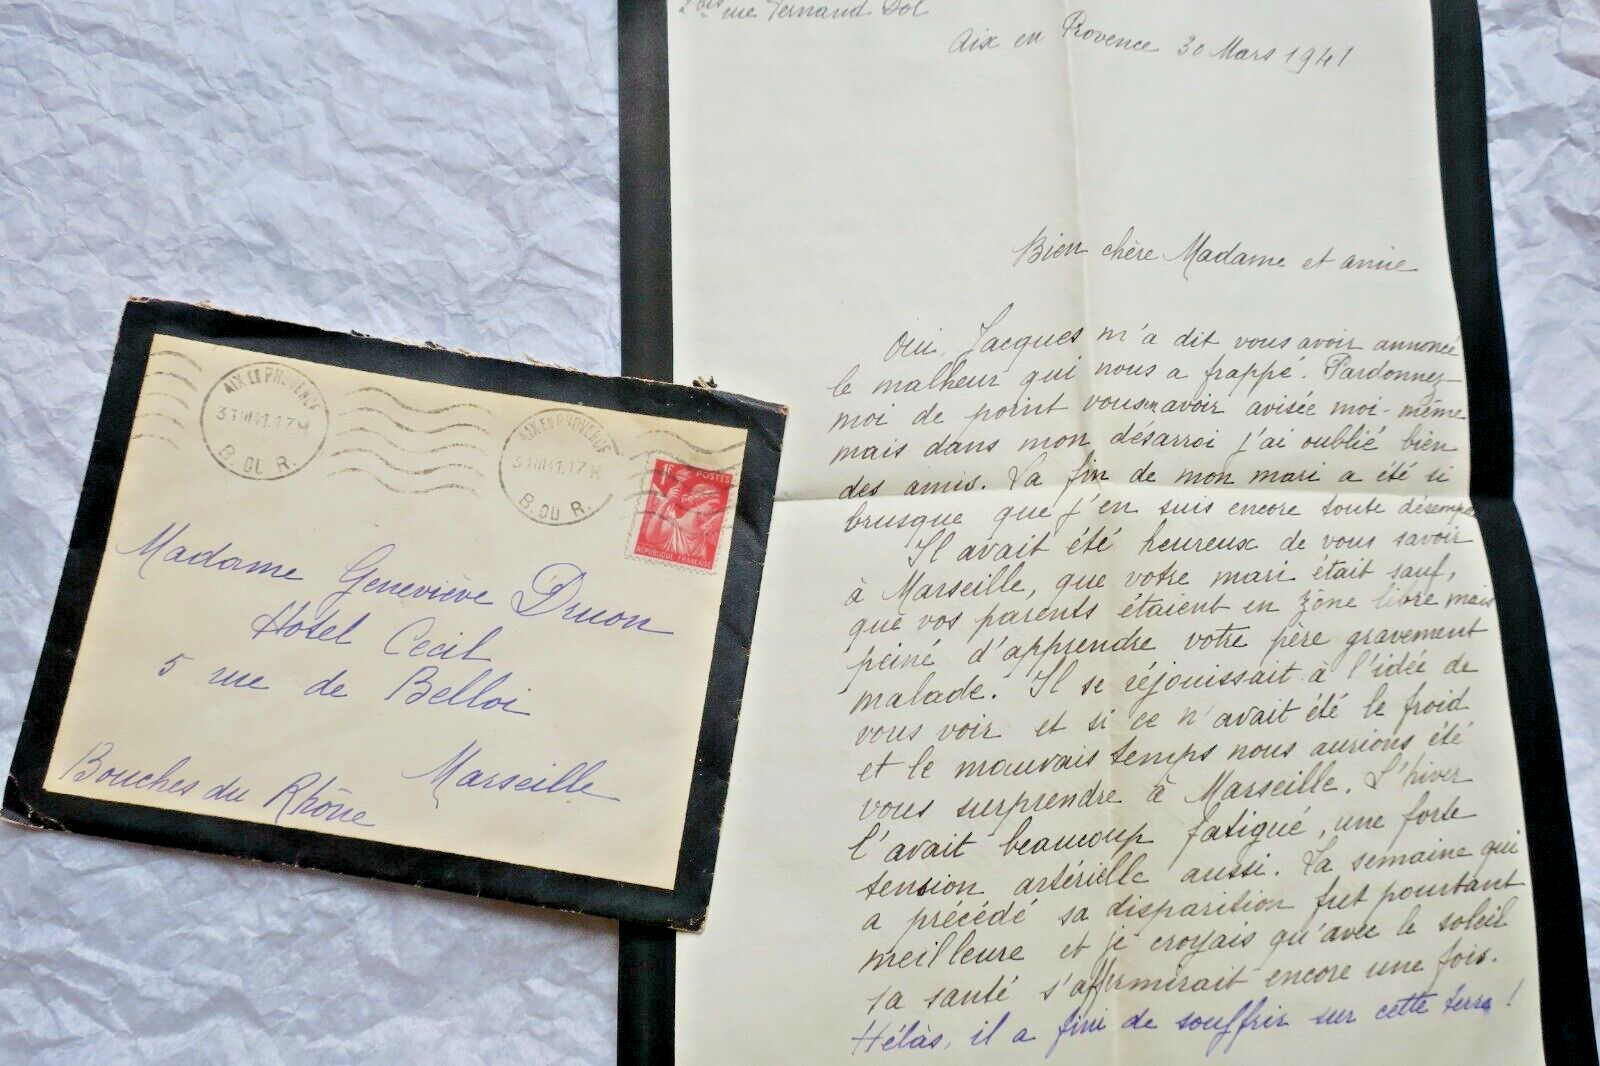 2 bis rue Fernand Dol
Aix en Provence 30 Mars 1941
Bien chère Madame et amie
Oui, Jacques m'a dit vous avoir annoncé
le malheur qui nous a frappé. Pardonnez-
moi de point vous en avoir avisée moi-même
mais dans mon désarroi j'ai oublié bien
des amis. La fin de mon mari a été si
brusque que j'en suis encore toute désempa
Il avait été heureux de vous savoir
à Marseille, que votre mari était sauf,
que vos parents étaient en zône libre mais
peiné d'apprendre votre père gravement
malade. Il se réjouissait à l'idée de
vous voir et si ce n'avait été le froid
et le mauvais temps nous aurions été
vous surprendre à Marseille. L'hiver
l'avait beaucoup fatigué, une forte
tension artérielle aussi. La semaine qui
a précédé sa disparition fut pourtant
meilleure et je croyais qu'avec le soleil
sa santé s'affirmirait encore une fois.
Hélàs, il a fini de souffrir sur cette terre!
AIX EN PROVENCE
31 III 41. 17 H
B. DU R.
AIX EN PROVENCE
31 III 41. 17 H
B. DU R.
1F
POSTES
RÉPUBLIQUE FRANÇAISE
Madame Geneviève Druon
Hotel Cecil
5 rue de Belloi
Marseille
Bouches du Rhône